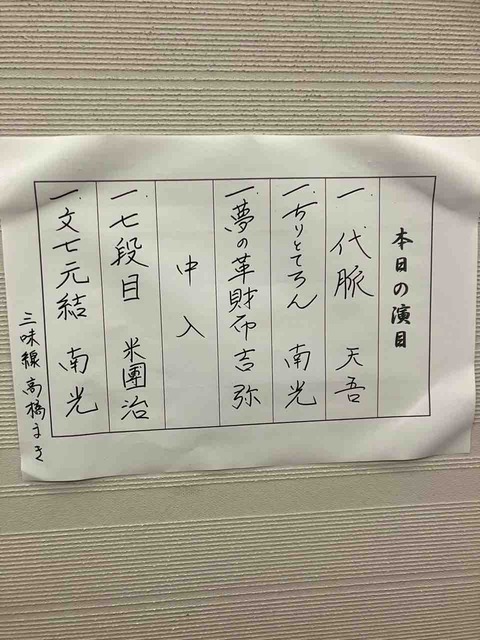 本日の演目
一、代脈 天吾
一、ちりとてちん 南光
一、夢の革財布 吉弥
中入
一、七段目 米團治
一、文七元結 南光
三味線 高橋まき